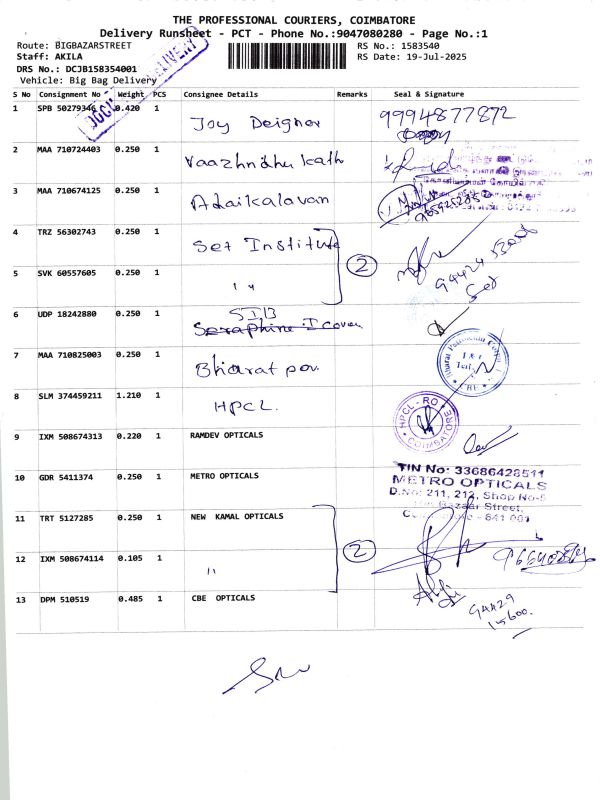 THE PROFESSIONAL COURIERS, COIMBATORE
Delivery Runsheet - PCT - Phone No.:9047080280 - Page No.:1
Route: BIGBAZARSTREET
RS No.: 1583540
Staff: AKILA
RS Date: 19-Jul-2025
DRS No.: DCJB158354001
Vehicle: Big Bag Delivery
DELIVERY
S No Consignment No Weight PCS Consignee Details Remarks Seal & Signature
1 SPB 50279346 0.420 1 Joy Deigner 9994877872
2 MAA 710724403 0.250 1 Vaazhndhu kath
3 MAA 710674125 0.250 1 Adaikalavan
4 TRZ 56302743 0.250 1 Set Institute
2
5 SVK 60557605 0.250 1 " "
Set
6 UDP 18242880 0.250 1 SIB
7 MAA 710825003 0.250 1 Bharat pov.
8 SLM 374459211 1.210 1 HPCL.
HPCL-RO COIMBATORE
9 IXM 508674313 0.220 1 RAMDEV OPTICALS
10 GDR 5411374 0.250 1 METRO OPTICALS
TIN No: 33686428511
METRO OPTICALS
D.No: 211, 212, Shop No-5
Bazaar Street,
641 001
11 TRT 5127285 0.250 1 NEW KAMAL OPTICALS
2
12 IXM 508674114 0.105 1 "
13 DPM 510519 0.485 1 CBE OPTICALS
94429
15600.